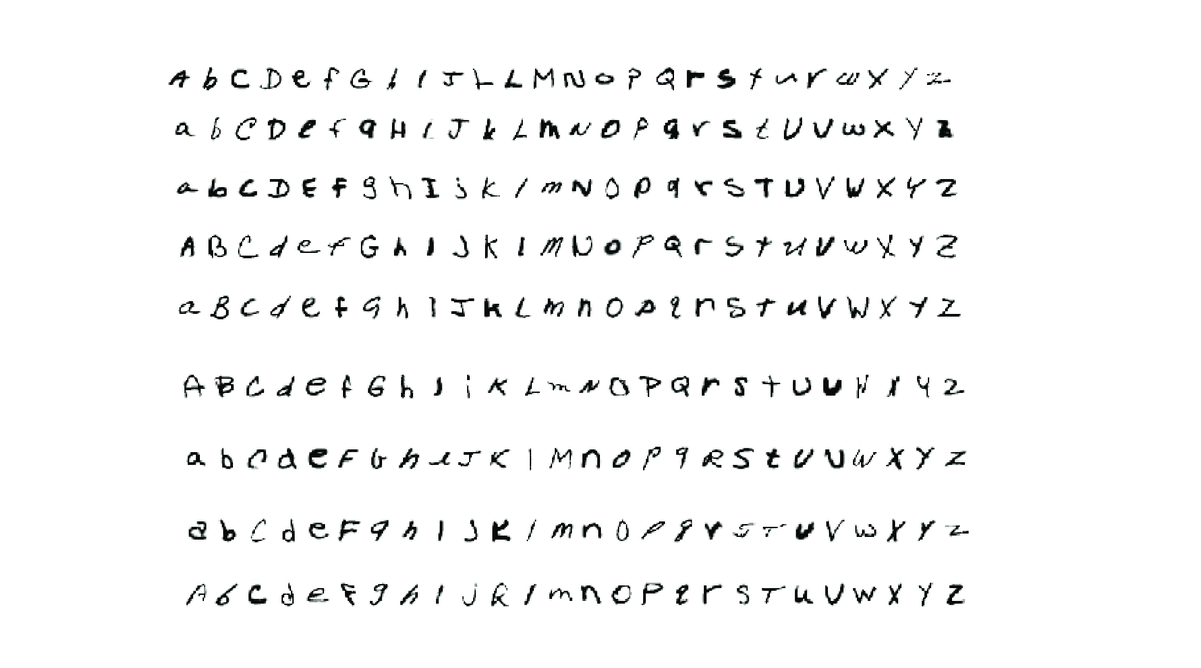 A b C D e f G h I J k L M N O P Q r S t u r w X Y z
a b C D e f q H I J k L m N O P q r S t U V w X Y z
a b C D E F g h I j K l m N O p q r S T U V W X Y Z
A B C d e f G h I J K l m N o P Q r S t u V w X Y Z
a B C d e f g h I J K L m n O p q n S t u V W X Y Z
A B C d e f G h J i K L m N O P Q r S t U U N X Y z
a b C d e F G h i J K l M n O P q R S t U U W X Y Z
a b C d e F q h I J K l m n O P q r S T u V w X Y z
A b C d e F g h I j R l m n O P q r S T u V w X Y Z